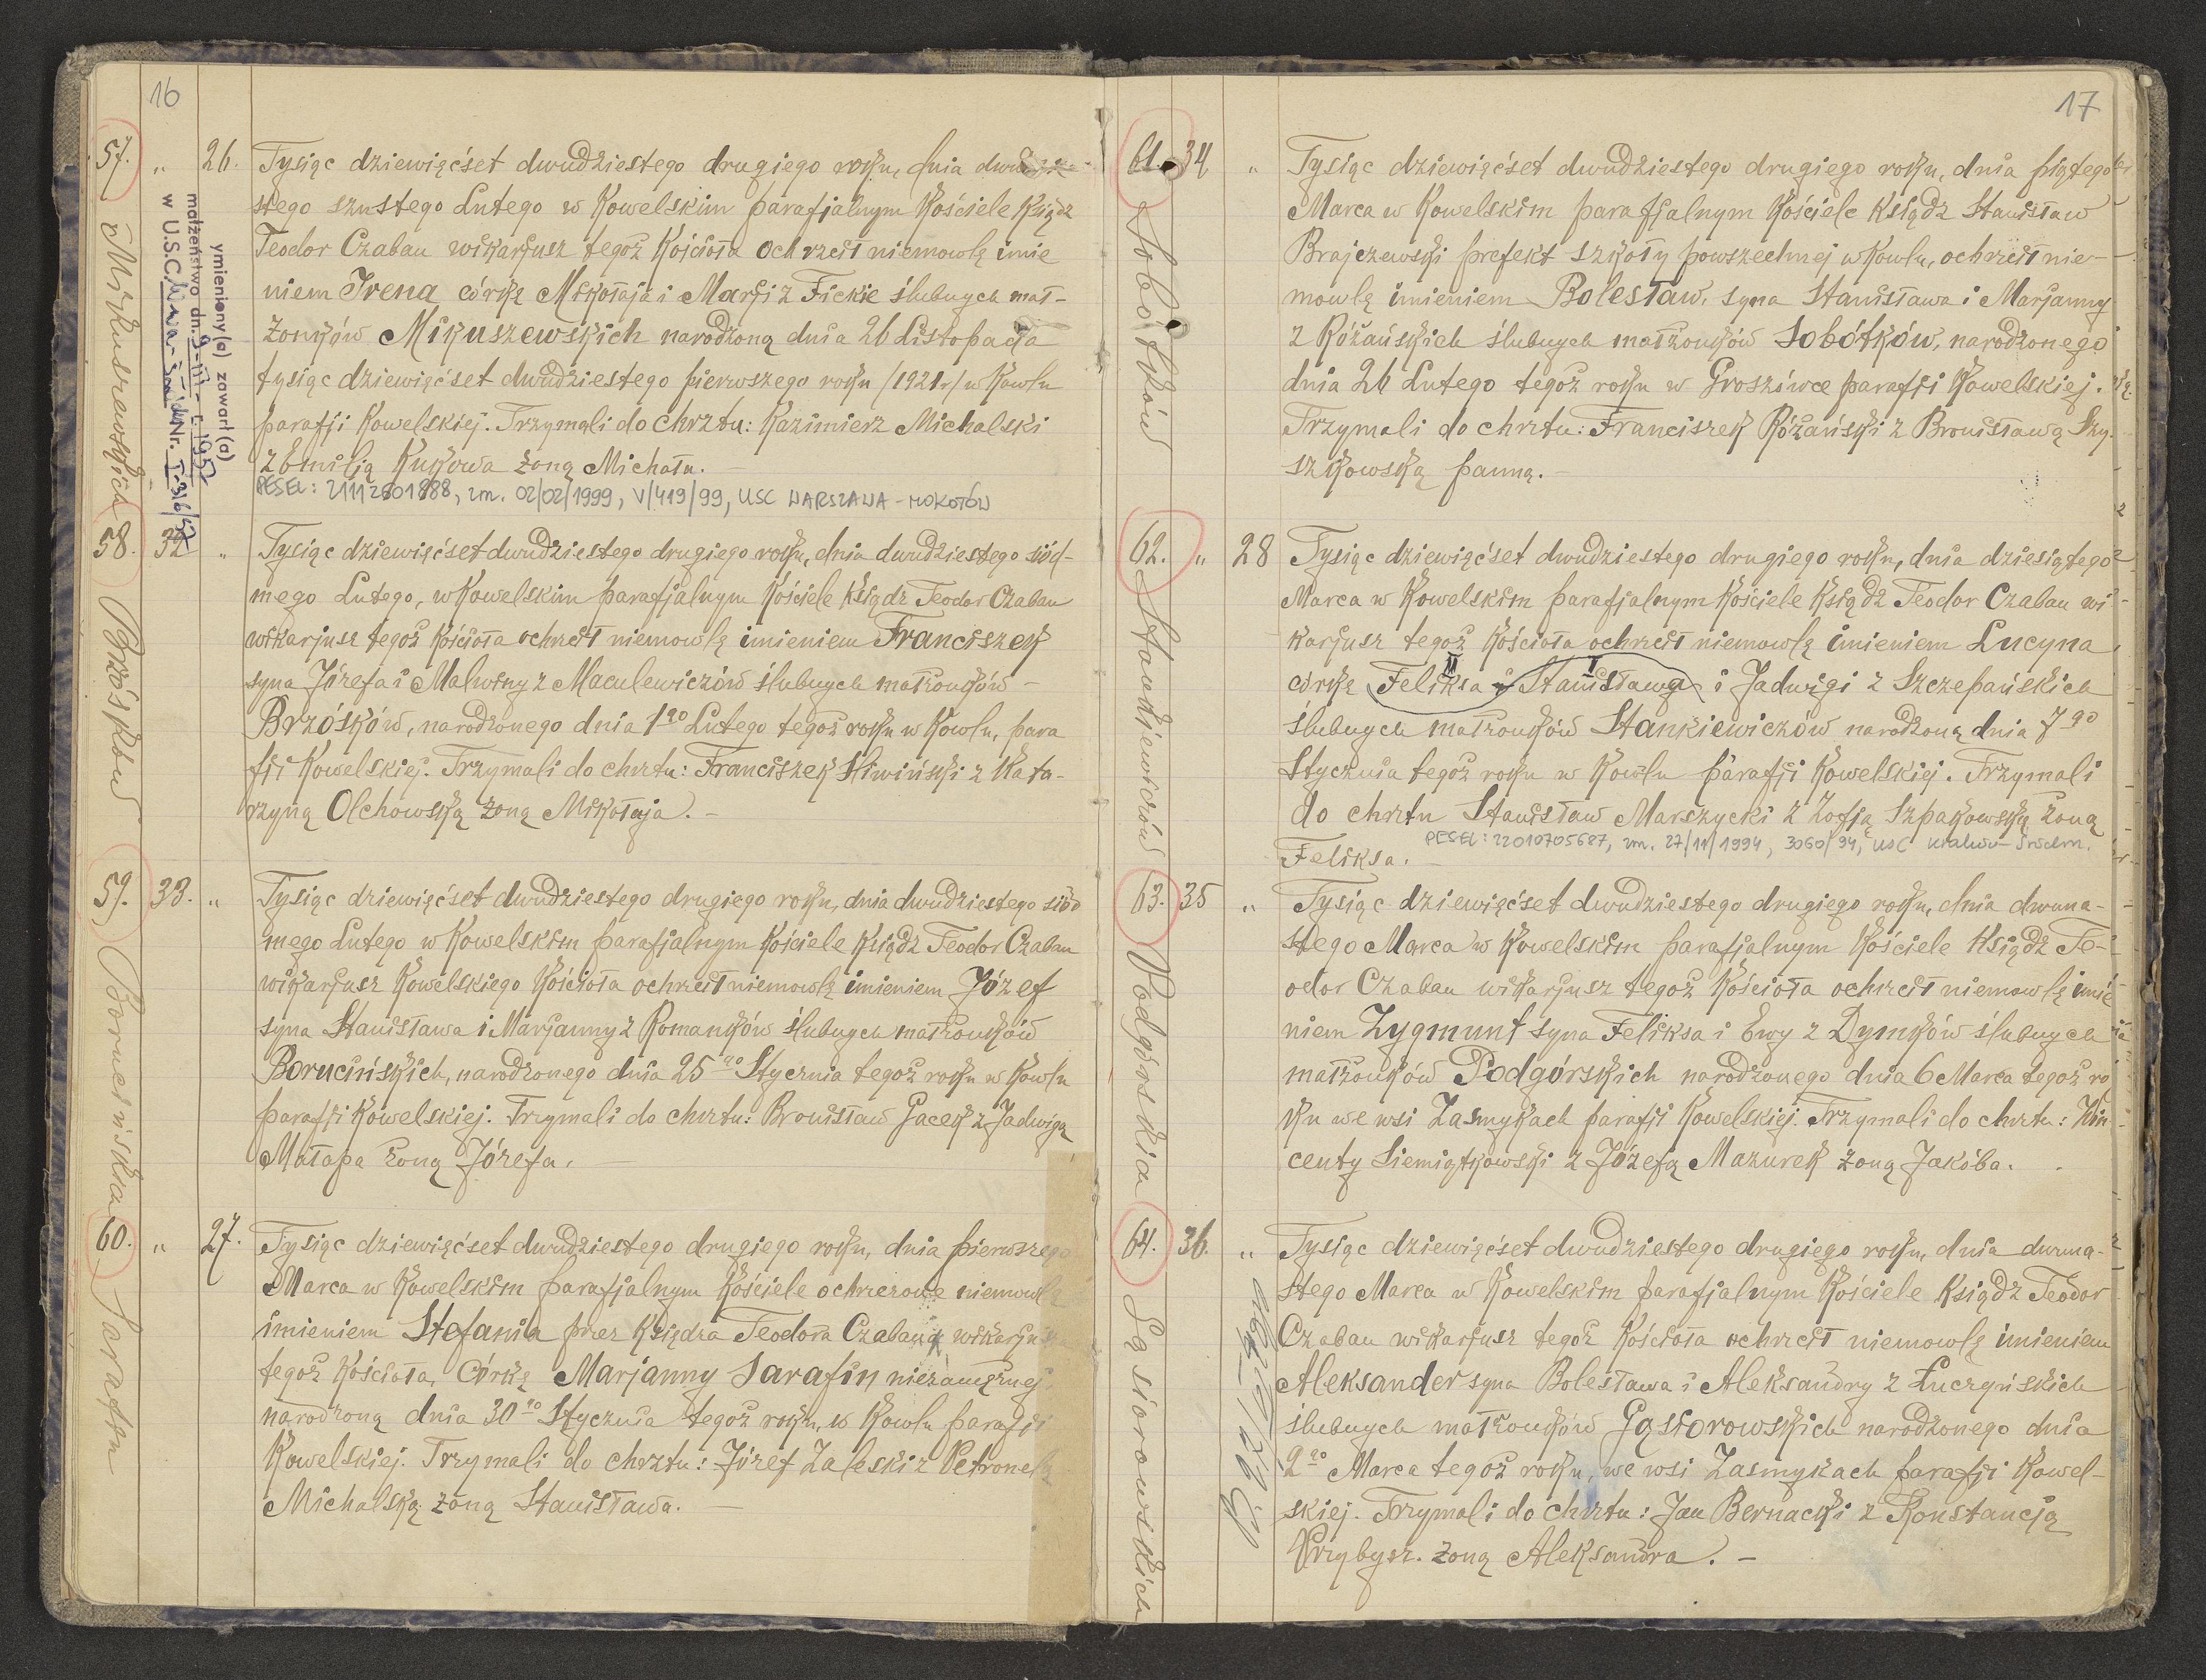 16
57. „ 26.
Mikuszewskich
wymieniony(a) zawarł(a)
małżeństwo dn. 9-III- r. 1957
w U.S.C.
Tysiąc dziewięćset dwudziestego drugiego roku, dnia
stego szustego Lutego w Kowelskim parafjalnym Kościele Ksiądz
Teodor Czaban wikarjusz tegoż Kościoła ochrzcił niemowlę imie
niem Irena córkę Mikołaja i Marji z Fickie ślubnych mał-
żonków Mikuszewskich narodzoną dnia 26 Listopada
tysiąc dziewięćset dwudziestego pierwszego roku /1921r/ w Kowlu
parafji Kowelskiej. Trzymali do chrztu: Kazimierz Michalski
z Emilją Kukowa żoną Michała. —
PESEL: 21112601888, zm. 02/02/1999, V/419/99, USC WARSZAWA - MOKOTÓW
58. 32 „
Brzósków
Tysiąc dziewięćset dwudziestego drugiego roku, dnia dwudziestego siód-
mego Lutego, w Kowelskim parafjalnym Kościele Ksiądz Teodor Czaban
wikarjusz tegoż Kościoła ochrzcił niemowlę imieniem Franciszek
syna Józefa i Malwiny z Maculewiczów ślubnych małżonków —
Brzósków, narodzonego dnia 1go Lutego tegoż roku w Kowlu, para
fji Kowelskiej. Trzymali do chrztu: Franciszek Śliwiński z Kata-
rzyną Olchowską żoną Mikołaja. —
59. 33. „
Borucińskich
Tysiąc dziewięćset dwudziestego drugiego roku, dnia dwudziestego siód
mego Lutego w Kowelskim parafjalnym Kościele Ksiądz Teodor Czaban
wikarjusz Kowelskiego Kościoła ochrzcił niemowlę imieniem Józef
syna Stanisława i Marjanny z Romanków ślubnych małżonków
Borucińskich, narodzonego dnia 25go Stycznia tegoż roku w Kowlu
parafji Kowelskiej. Trzymali do chrztu: Bronisław Gacek z Jadwigą
Małapa żoną Józefa. —
60. „ 27.
Sarafin
Tysiąc dziewięćset dwudziestego drugiego roku, dnia pierwszego
Marca w Kowelskim parafjalnym Kościele ochrzczone niemowlę
imieniem Stefania przez Księdza Teodora Czabana wikarjusza
tegoż Kościoła, Córkę Marjanny Sarafin niezamężnej,
narodzoną dnia 30go Stycznia tegoż roku, w Kowlu parafji
Kowelskiej. Trzymali do chrztu: Józef Zaleski z Petronelą
Michalską żoną Stanisława. —
17
61. 34 „
Sobótków
Tysiąc dziewięćset dwudziestego drugiego roku, dnia piątego
Marca w Kowelskim parafjalnym Kościele Ksiądz Stanisław
Brajczewski prefekt szkoły powszechnej w Kowlu, ochrzcił nie-
mowlę imieniem Bolesław, syna Stanisława i Marjanny
z Różańskich ślubnych małżonków Sobótków, narodzonego
dnia 26 Lutego tegoż roku w Groszówce parafji Kowelskiej.
Trzymali do chrztu: Franciszek Różański z Bronisławą Szy-
szkowską panną. —
62. „ 28
Stankiewiczów
Tysiąc dziewięćset dwudziestego drugiego roku, dnia dziesiątego
Marca w Kowelskim parafjalnym Kościele Ksiądz Teodor Czaban wi-
karjusz tegoż Kościoła ochrzcił niemowlę imieniem Lucyna,
II I
córkę Feliksa Stanisława i Jadwigi z Szczepańskich
ślubnych małżonków Stankiewiczów narodzoną dnia 7go
Stycznia tegoż roku w Kowlu parafji Kowelskiej. Trzymali
do chrztu Stanisław Marszycki z Zofją Szpakowską żoną
PESEL: 22010705687, zm. 27/11/1994, 3060/94, USC Kraków - Śródm.
Feliksa. —
63. 35 „
Podgórskich
Tysiąc dziewięćset dwudziestego drugiego roku, dnia dwuna-
stego Marca w Kowelskim parafjalnym Kościele Ksiądz Te-
odor Czaban wikarjusz tegoż Kościoła ochrzcił niemowlę imie
niem Zygmunt syna Feliksa i Ewy z Dymków ślubnych
małżonków Podgórskich narodzonego dnia 6 Marca tegoż ro
ku we wsi Zasmykach parafji Kowelskiej. Trzymali do chrztu: Win-
centy Siemiątkowski z Józefą Mazurek żoną Jakóba.
64. 36. „
Gąsiorowskich
Tysiąc dziewięćset dwudziestego drugiego roku, dnia dwuna-
stego Marca w Kowelskim parafjalnym Kościele Ksiądz Teodor
Czaban wikarjusz tegoż Kościoła ochrzcił niemowlę imieniem
Aleksander syna Bolesława i Aleksandry z Łuczyńskich
ślubnych małżonków Gąsiorowskich narodzonego dnia
2go Marca tegoż roku, we wsi Zasmykach parafji Kowel-
skiej. Trzymali do chrztu: Jan Bernacki z Konstancją
Przybysz. żoną Aleksandra. —